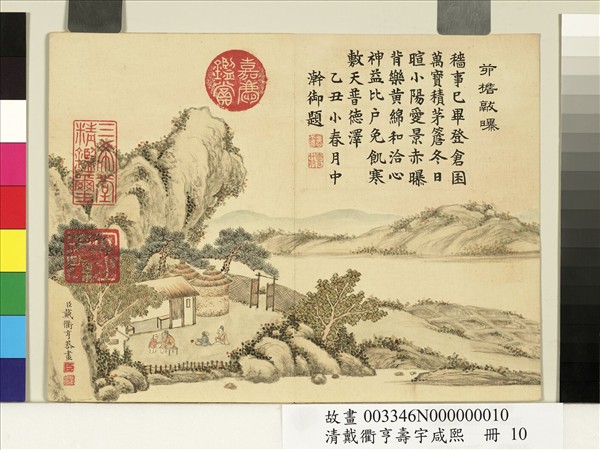 茆檐敲曝
穡事已畢登倉囷
萬寶積茅簷冬日
暄小陽愛景赤曝
背樂黃綿和洽心
神益比户免飢寒
敷天普德澤
乙丑小春月中
澣御題
嘉慶鑑賞
三希堂
精鑑璽
臣戴衢亨恭畫
故畫 003346N000000010
清戴衢亨壽宇咸熙 冊 10